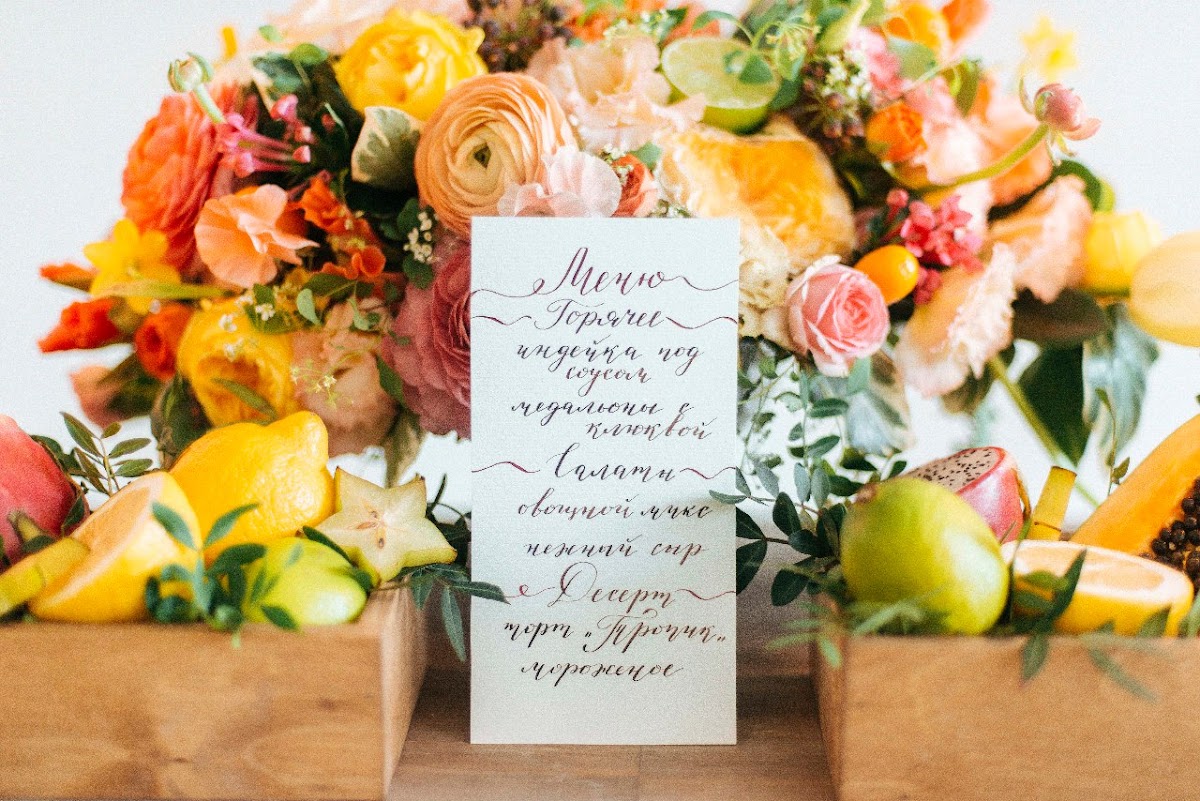 Меню
Горячее
индейка под
соусом
медальоны с
клюквой
Салаты
овощной микс
нежный сыр
Десерт
торт „Тропик„
мороженое